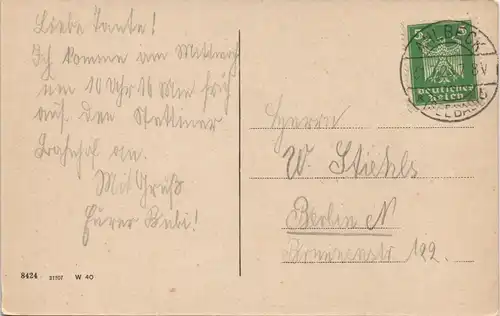 Liebe Tante!
Ich komme am Mittwoch
um 10 Uhr 16 Min früh
auf den Stettiner
Bahnhof an.
Mit Gruß
Eurer Bubi!
Herrn
W. Stiehls
Berlin N
Brunnenstr 122.
5 5
Deutsches
Reich
AHLBECK
SEEBAD
8424 31107 W 40